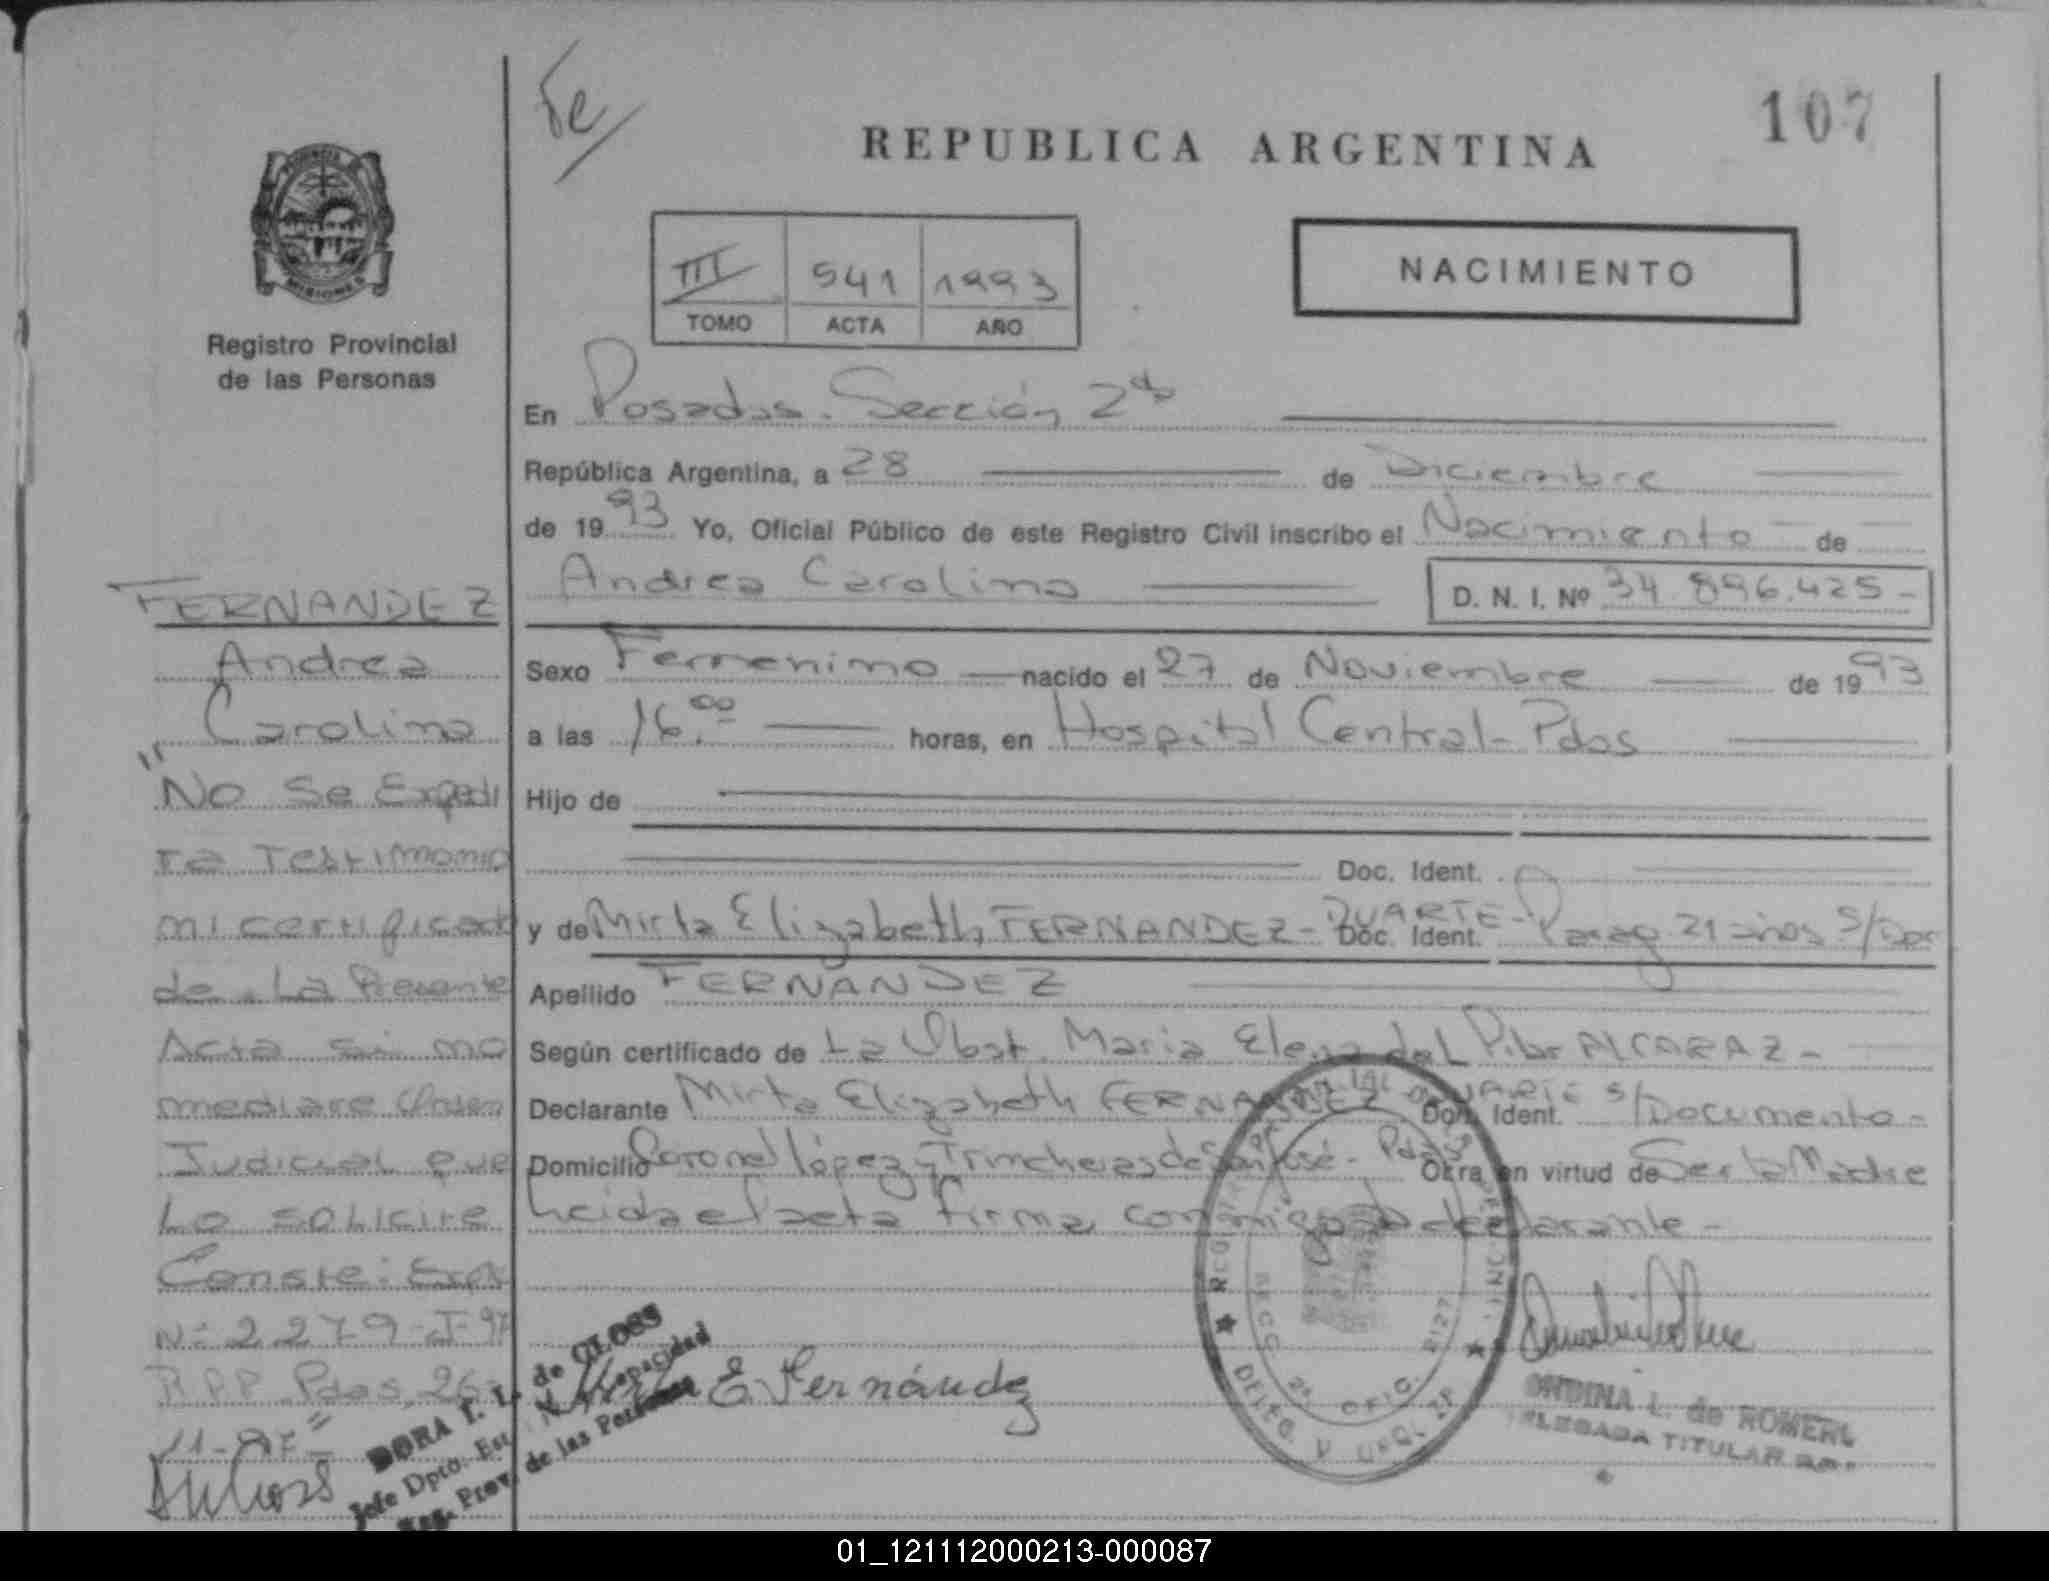 Fe
107
REPUBLICA ARGENTINA
MISIONES
Registro Provincial
de las Personas
III 541 1993
TOMO ACTA AÑO
NACIMIENTO
En Posadas. Sección 2da
República Argentina, a 28 de Diciembre
de 1993 Yo, Oficial Público de este Registro Civil inscribo el Nacimiento de
Andrea Carolina D. N. I. Nº 34.896.425 -
Sexo Femenino nacido el 27 de Noviembre de 1993
a las 16.00 horas, en Hospital Central - Pdas
Hijo de
Doc. Ident.
y de Mirta Elizabeth FERNANDEZ - DUARTE - Doc. Ident. Parag 21 años S/Doc
Apellido FERNANDEZ
Según certificado de La Obst. Maria Elena del Pilar ALCARAZ -
Declarante Mirta Elizabeth FERNANDEZ DUARTE Doc. Ident. s/Documento -
Domicilio Coronel López y Trincheras de San José - Pdas Obra en virtud de Ser la Madre
Leida el acta firma conmigo la declarante -
FERNANDEZ
Andrea
Carolina
"No Se Expedi
ra Testimonio
ni certificado
de La Presente
Acta si no
mediare Orden
Judicial que
Lo solicite
Conste: Expte
Nº 2279-I-97
R.P.P. Pdas, 26-
11-97"
DORA I. L. de GLOSS
Jefe Dpto. Est. y Capacidad
Reg. Prov. de las Personas
E. Fernández
SECC. 2ª OFIC.
ONDINA L. de ROMERO
DELEGADA TITULAR
01_121112000213-000087